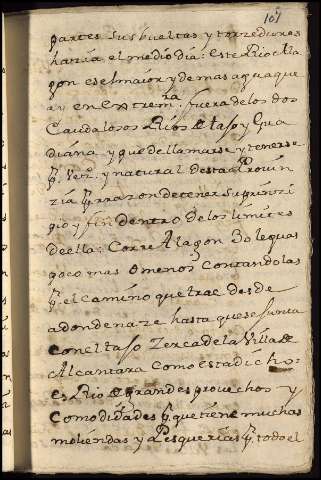 107
partes sus bueltas y torzeduras
hazia el medio dia: Este Rio ala
gon es el maior y de mas agua que
ay en Extrem.ra fuera de los dos
Caudalosos Rios de tajo y Gua
diana, y que de llamarse y tenerse
p. y natural desta Provin
zia p. rrazon de tener su prinzi
pio y fin dentro de los limites
de ella: Corre Alagon 30 leguas
poco mas o menos contandolas
p. el camino que trae desde
adonde naze hasta que se junta
con el tajo zerca de la Villa de
Alcantara como esta dicho:
es Rio de grandes provechos y
Comodidades p. que tiene muchas
moliendas y Pesquerias p. todo el